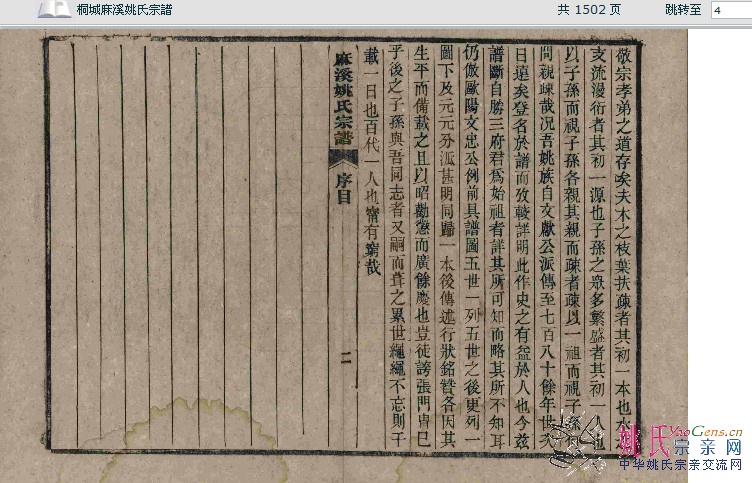 桐城麻溪姚氏宗譜
共 1502 页
跳转至
4
敬宗孝弟之道存矣夫木之枝葉扶疎者其初一本也水
支流漫衍者其初一源也子孫之眾多繁盛者其初一人也
以子孫而視子孫各親其親而疎者疎以一祖而視子孫何
間親疎哉况吾姚族自文獻公派傳至七百八十餘年世次
日遠矣登名於譜而攷較詳明此作史之有益於人也今茲
譜斷自勝三府君為始祖者詳其所可知而略其所不知耳
仍倣歐陽文忠公例前具譜圖五世一列五世之後更列一
圖下及元元分派甚明同歸一本後傳述行狀銘贊各因其
生平而備載之且以昭勸懲而廣餘慶也豈徒誇張門胄已
乎後之子孫與吾同志者又嗣而葺之累世繩繩不忘則千
載一日也百代一人也甯有窮哉
麻溪姚氏宗譜
序目
二
姚氏宗亲网
YaoGens.cn
中华姚氏宗亲交流网